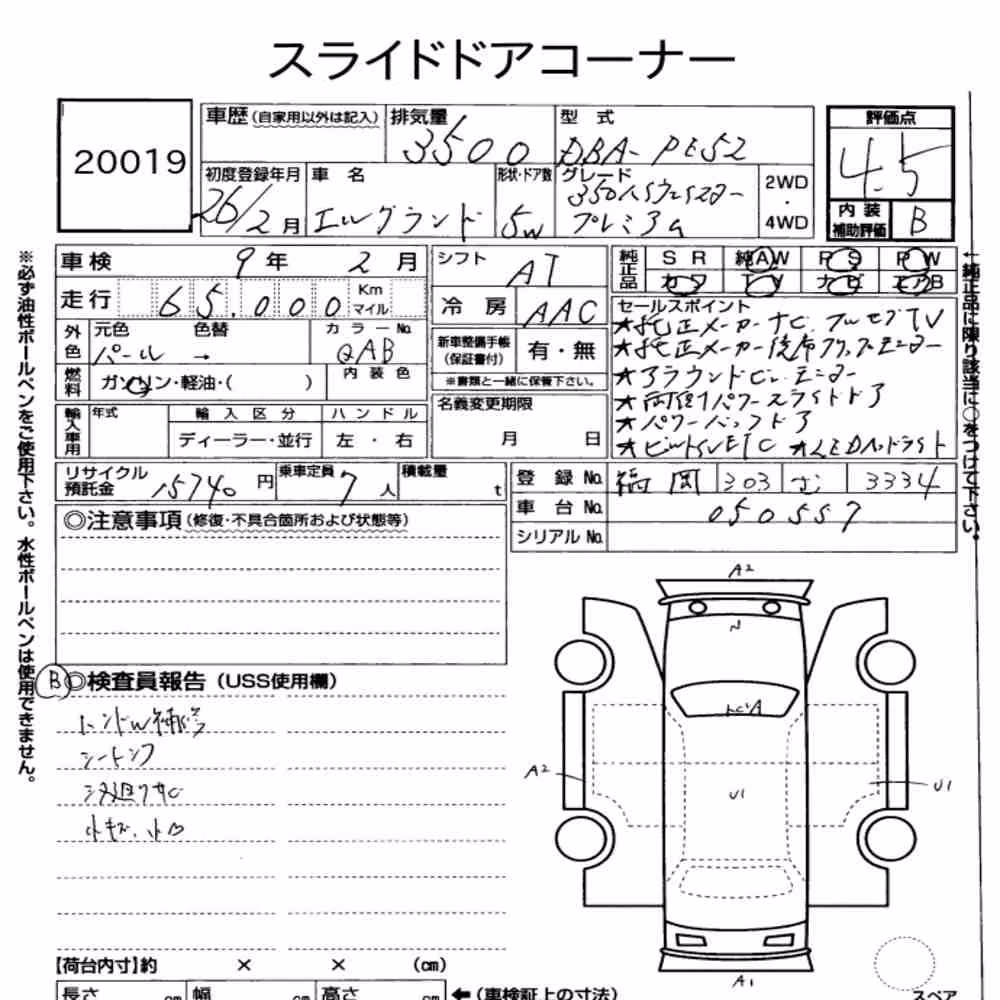 スライドドアコーナー
20019
車歴 (自家用以外は記入) 排気量 3500 型式 DBA-PE52
評価点 4.5
初度登録年月 26/2月 車名 エルグランド 形状・ドア数 5W グレード 350ハイウェイスター プレミアム 2WD・4WD
内装補助評価 B
車検 9年 2月 シフト AT
純正品 SR 純AW PS PW
カワ TV ナビ エアB
走行 65,000 Km マイル 冷房 AAC
セールスポイント
★純正メーカーナビ フルセグTV
外色 元色 パール 色替 → カラーNo. QAB
新車整備手帳 (保証書付) 有・無
★純正メーカー後席フリップモニター
燃料 ガソリン・軽油・( ) 内装色
※書類と一緒に保管下さい。
★アラウンドビューモニター
★両側パワースライドドア
輸入車用 年式 輸入区分 ハンドル
名義変更期限
★パワーバックドア
ディーラー・並行 左・右
月 日
★ビルトインETC ★LEDヘッドライト
リサイクル預託金 15740円 乗車定員 7人 積載量 t
登録No. 福岡 303 3334
車台No. 050557
シリアルNo.
◎注意事項 (修復・不具合箇所および状態等)
B ◎検査員報告 (USS使用欄)
ハンドル補修
シートシワ
小キズ、小凹
A2
A2
U1
U1
A1
【荷台内寸】約 × × (cm)
長さ cm 幅 cm 高さ cm ←(車検証上の寸法)
スペア
※必ず油性ボールペンをご使用下さい。水性ボールペンは使用できません。
←純正品に限り該当に○をつけて下さい。